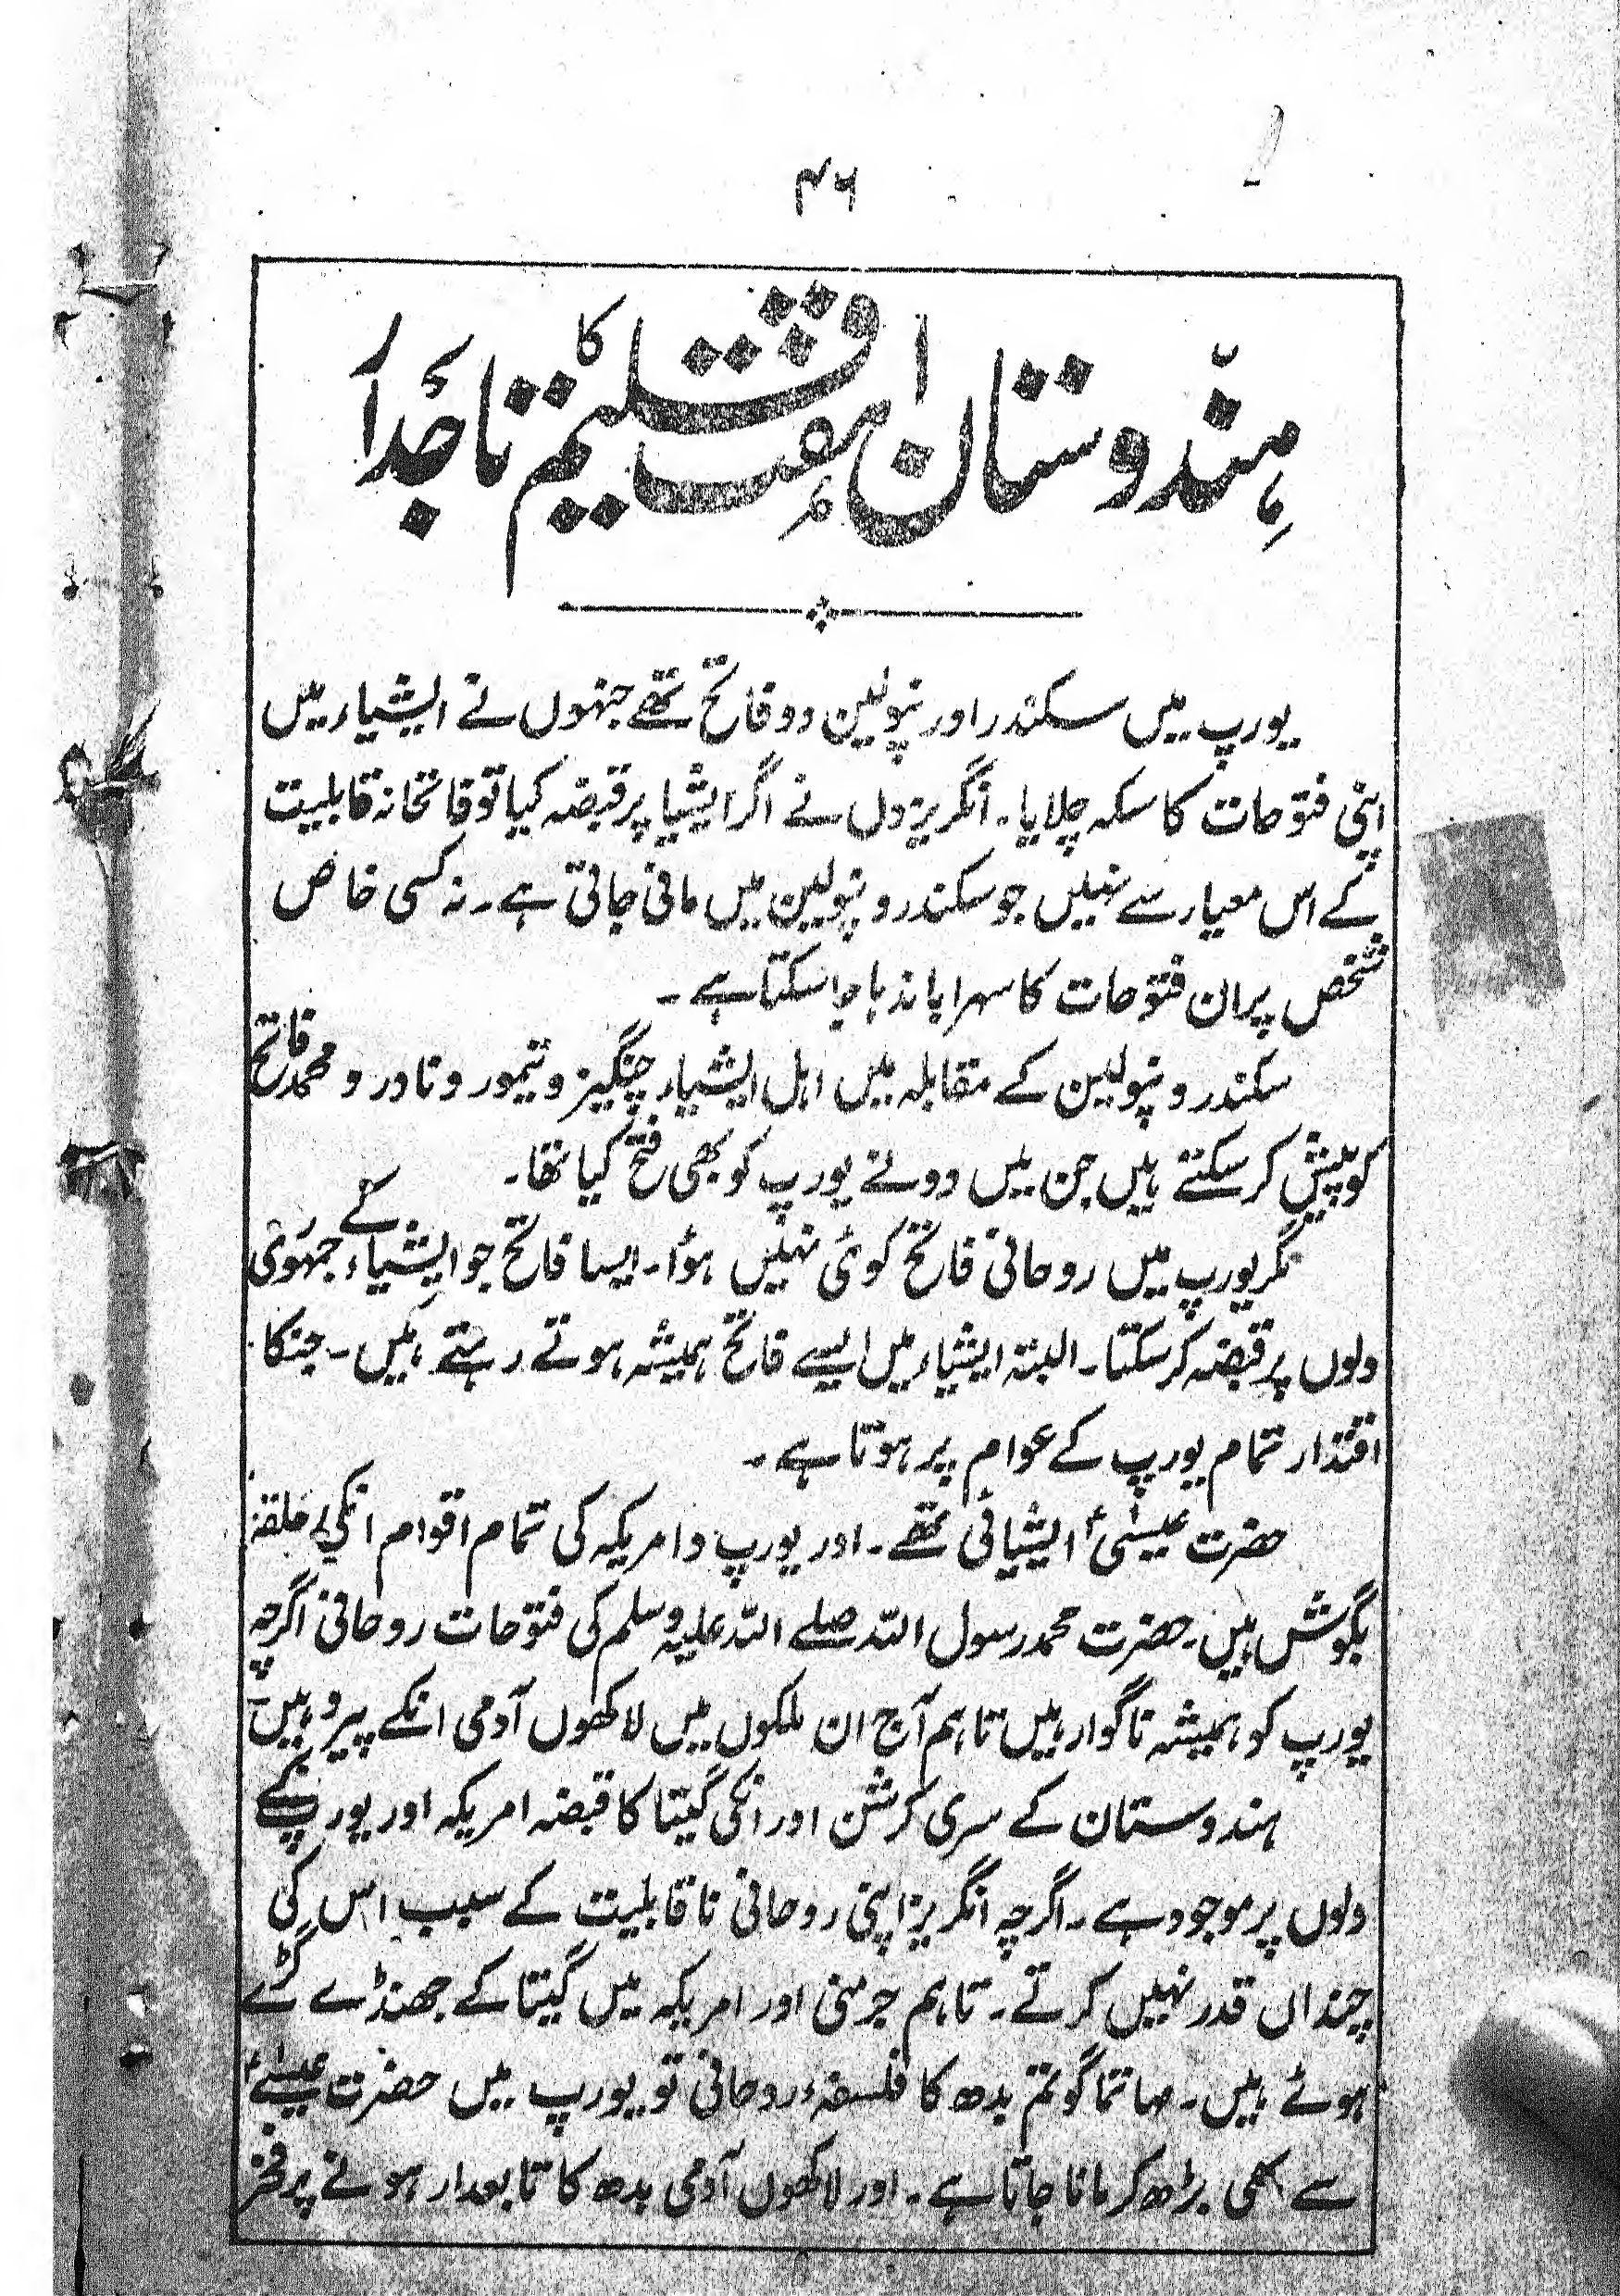 ۴۶
ہندوستان ہفت اقلیم کا تاجدار
یورپ میں سکندر اور نپولین دو فاتح تھے جنہوں نے ایشیاء میں
اپنی فتوحات کا سکہ چلایا۔ انگریز دل نے اگر ایشیا پر قبضہ کیا تو فاتحانہ قابلیت
کے اس معیار سے نہیں جو سکندر و نپولین میں مانی جاتی ہے۔ نہ کسی خاص
شخص پر ان فتوحات کا سہرا باندہا جا سکتا ہے۔
سکندر و نپولین کے مقابلہ میں اہل ایشیاء چنگیز و تیمور و نادر و محمد فاتح
کو پیش کر سکتے ہیں جن میں دو نے یورپ کو بھی فتح کیا تھا۔
مگر یورپ میں روحانی فاتح کوئی نہیں ہؤا۔ ایسا فاتح جو ایشیاء کے جمہوری
دلوں پر قبضہ کر سکتا۔ البتہ ایشیاء میں ایسے فاتح ہمیشہ ہوتے رہتے ہیں۔ جنکا
اقتدار تمام یورپ کے عوام پر ہوتا ہے۔
حضرت عیسیٰؑ ایشیائی تھے۔ اور یورپ و امریکہ کی تمام اقوام انکی حلقہ
بگوش ہیں۔ حضرت محمد رسول اللہ صلے اللہ علیہ وسلم کی فتوحات روحانی اگرچہ
یورپ کو ہمیشہ ناگوار ہیں تاہم آج ان ملکوں میں لاکھوں آدمی انکے پیرو ہیں۔
ہندوستان کے سری کرشن اور انکی گیتا کا قبضہ امریکہ اور یورپ کے
دلوں پر موجود ہے۔ اگرچہ انگریز اپنی روحانی ناقابلیت کے سبب اس کی
چنداں قدر نہیں کرتے۔ تاہم جرمنی اور امریکہ میں گیتا کے جھنڈے گڑے
ہوئے ہیں۔ مہاتما گوتم بدھ کا فلسفۂ روحانی تو یورپ میں حضرت عیسےٰؑ
سے بھی بڑھ کر مانا جاتا ہے۔ اور لاکھوں آدمی بدھ کا تابعدار ہونے پر فخر